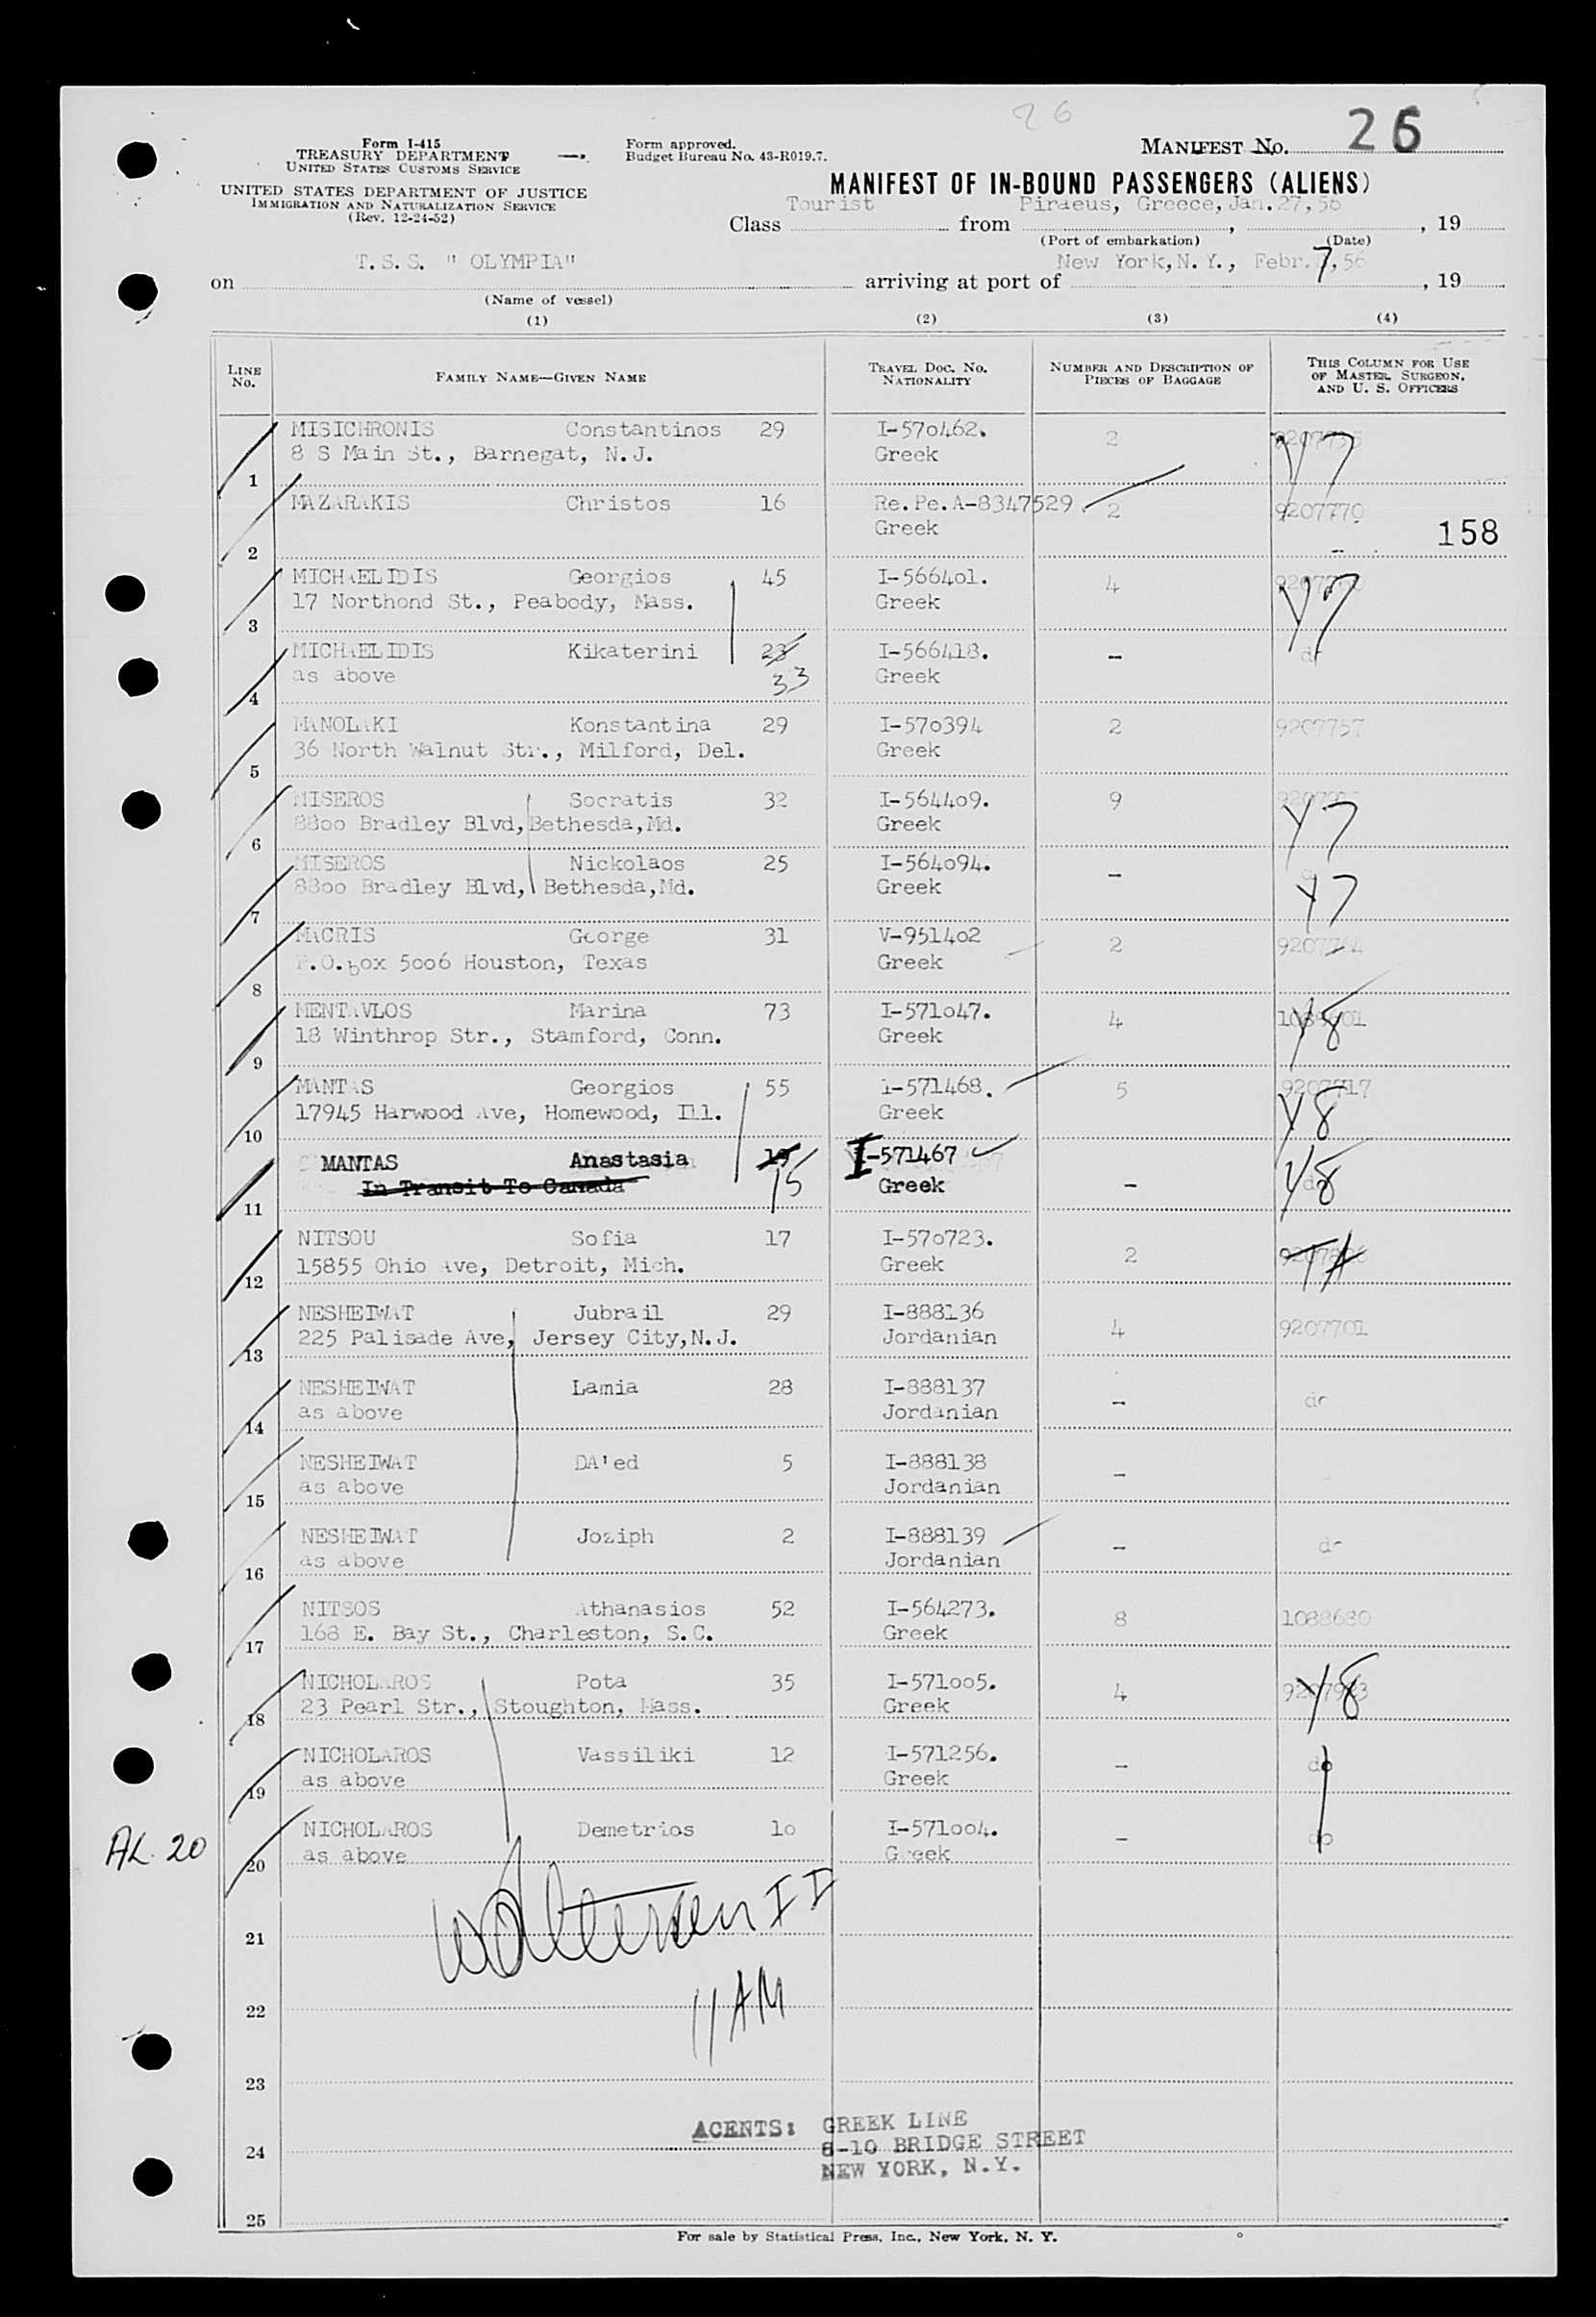 26
Form I-415
TREASURY DEPARTMENT
UNITED STATES CUSTOMS SERVICE
UNITED STATES DEPARTMENT OF JUSTICE
IMMIGRATION AND NATURALIZATION SERVICE
(Rev. 12-24-52)
Form approved.
Budget Bureau No. 43-R019.7.
MANIFEST NO. 26
MANIFEST OF IN-BOUND PASSENGERS (ALIENS)
Class Tourist from Piraeus, Greece, Jan. 27, 56, 19
(Port of embarkation) (Date)
on T.S.S. " OLYMPIA" arriving at port of New York, N.Y., Febr. 7, 56, 19
(Name of vessel)
(1) (2) (3) (4)
LINE NO. FAMILY NAME—GIVEN NAME TRAVEL DOC. NO. NATIONALITY NUMBER AND DESCRIPTION OF PIECES OF BAGGAGE THIS COLUMN FOR USE OF MASTER, SURGEON, AND U. S. OFFICERS
MISICHRONIS Constantinos 29 I-570462. 2 Y7
8 S Main St., Barnegat, N.J. Greek
1
MAZARAKIS Christos 16 Re.Pe.A-8347529 2 9207770
Greek 158
2
MICHAELIDIS Georgios 45 I-566401. 4 Y7
17 Northond St., Peabody, Mass. Greek
3
MICHAELIDIS Kikaterini 23 I-566418. -
as above 33 Greek
4
MANOLAKI Konstantina 29 I-570394 2 9207757
36 North Walnut Str., Milford, Del. Greek
5
MISEROS Socratis 32 I-564409. 9 Y7
8800 Bradley Blvd, Bethesda, Md. Greek
6
MISEROS Nickolaos 25 I-564094. - Y7
8800 Bradley Blvd, Bethesda, Md. Greek
7
MACRIS George 31 V-951402 2
P.O.box 5006 Houston, Texas Greek
8
MENTAVLOS Marina 73 I-571047. 4 Y8
18 Winthrop Str., Stamford, Conn. Greek
9
MANTAS Georgios 55 I-571468. 5 Y8
17945 Harwood Ave, Homewood, Ill. Greek
10
MANTAS Anastasia 19 I-571467 Y8
In Transit To Canada 15 Greek -
11
NITSOU Sofia 17 I-570723. 2 TA
15855 Ohio Ave, Detroit, Mich. Greek
12
NESHEIWAT Jubrail 29 I-888136 4 9207701
225 Palisade Ave, Jersey City, N.J. Jordanian
13
NESHEIWAT Lamia 28 I-888137 - do
as above Jordanian
14
NESHEIWAT DA'ed 5 I-888138 -
as above Jordanian
15
NESHEIWAT Joziph 2 I-888139 - do
as above Jordanian
16
NITSOS Athanasios 52 I-564273. 8 1088680
168 E. Bay St., Charleston, S.C. Greek
17
NICHOLAROS Pota 35 I-571005. 4 Y8
23 Pearl Str., Stoughton, Mass. Greek
18
NICHOLAROS Vassiliki 12 I-571256. - do
as above Greek
19
NICHOLAROS Demetrios 10 I-571004. - do
as above Greek
AL. 20
20
II
21
11 AM
22
23
AGENTS: GREEK LINE
24 8-10 BRIDGE STREET
NEW YORK, N.Y.
25
For sale by Statistical Press, Inc., New York, N. Y.